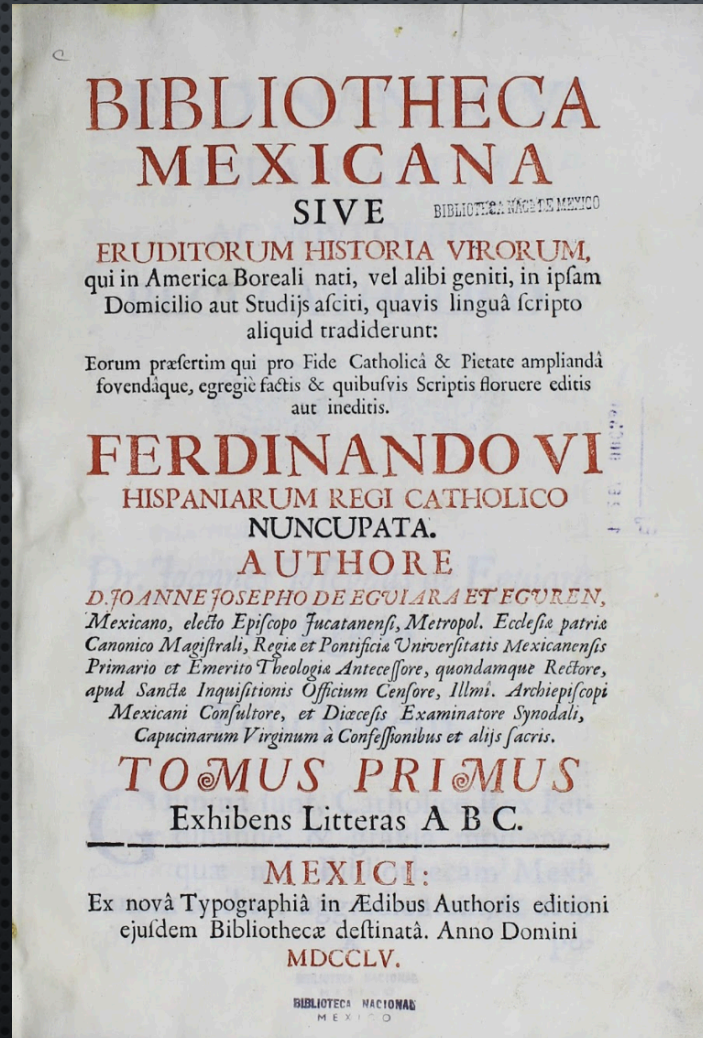 BIBLIOTHECA
MEXICANA
SIVE
BIBLIOTECA NACL DE MEXICO
ERUDITORUM HISTORIA VIRORUM,
qui in America Boreali nati, vel alibi geniti, in ipſam
Domicilio aut Studijs aſciti, quavis linguâ ſcripto
aliquid tradiderunt:
Eorum præſertim qui pro Fide Catholicâ & Pietate ampliandâ
fovendâque, egregiè factis & quibuſvis Scriptis floruere editis
aut ineditis.
FERDINANDO VI
HISPANIARUM REGI CATHOLICO
NUNCUPATA.
AUTHORE
D. JOANNE JOSEPHO DE EGUIARA ET EGUREN,
Mexicano, electo Epiſcopo Jucatanenſi, Metropol. Eccleſiæ patriæ
Canonico Magiſtrali, Regiæ et Pontificiæ Univerſitatis Mexicanenſis
Primario et Emerito Theologiæ Anteceſſore, quondamque Rectore,
apud Sanctæ Inquiſitionis Officium Cenſore, Illmi. Archiepiſcopi
Mexicani Conſultore, et Diœceſis Examinatore Synodali,
Capucinarum Virginum à Confeſſionibus et alijs ſacris.
TOMUS PRIMUS
Exhibens Litteras A B C.
MEXICI:
Ex novâ Typographiâ in Ædibus Authoris editioni
ejuſdem Bibliothecæ deſtinatâ. Anno Domini
MDCCLV.
BIBLIOTECA NACIONAL
MEXICO